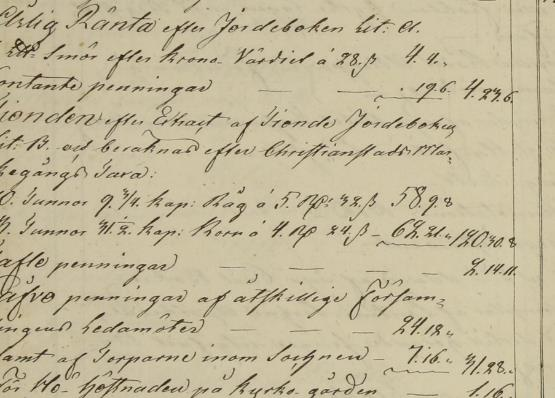 Årlig Ränta efter Jordeboken Lit: A.
Smör efter Krono Värdiet á 28.ß 4. 4.„
ontante penningar — — . 19.6. 4.23.6.
ionden efter Extract af Tionde Jordeboken
it: B. och beräknad efter Christianstads Mar-
kegångs Taxa:
0. Tunnor 9. 3/4. Kap: Råg á 5. Rd: 32.ß 58.9.8
Tunnor Kap: Korn á 4. Rd 24.ß — 62.21.„ 120.30.8
afle penningar — — — — 2.14.11.
åfve penningar af åtskillige Försam=
ingens Ledamöter — — — 24.12.„
amt af Torparne inom Sochnen — 7.16.„ 31.28.„
ör Hö- på Kyrko-gården — 1.16.